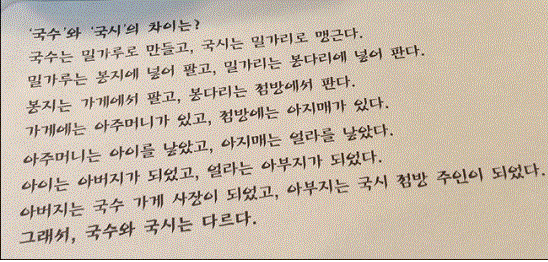 '국수'와 '국시'의 차이는?
국수는 밀가루로 만들고, 국시는 밀가리로 맹근다.
밀가루는 봉지에 넣어 팔고, 밀가리는 봉다리에 넣어 판다.
봉지는 가게에서 팔고, 봉다리는 점방에서 판다.
가게에는 아주머니가 있고, 점방에는 아지매가 있다.
아주머니는 아이를 낳았고, 아지매는 얼라를 낳았다.
아이는 아버지가 되었고, 얼라는 아부지가 되었다.
아버지는 국수 가게 사장이 되었고, 아부지는 국시 점방 주인이 되었다.
그래서, 국수와 국시는 다르다.